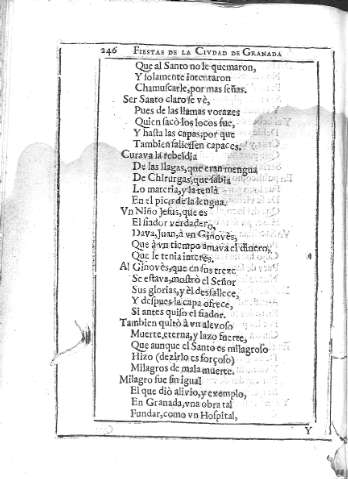 246 FIESTAS DE LA CIVDAD DE GRANADA
Que al Santo no le quemaron,
Y solamente intentaron
Chamuscarle, por mas señas.
Ser Santo claro se vè,
Pues de las llamas vorazes
Quien sacò los locos fue,
Y hasta las capas, por que
Tambien saliessen capaces.
Curava la rebeldia
De las llagas, que eran mengua
De Chirurgas, que sabia
Lo materia, y la tenia
En el pico de la lengua.
Vn Niño Jesus, que es
El fiador verdadero,
Dava, Juan, à vn Ginovès,
Que à vn tiempo amava el dinero,
Que le tenia interès.
Al Ginovès, que en sus trece
Se estava, mostrò el Señor
Sus glorias, y èl desfallece,
Y despues la capa ofrece,
Si antes quiso el fiador.
Tambien quitò à vn alevoso
Muerte, eterna, y lazo fuerte,
Que aunque el Santo es milagroso
Hizo (dezirlo es forçoso)
Milagros de mala muerte.
Milagro fue sin igual
El que diò alivio, y exemplo,
En Granada, vna obra tal
Fundar, como vn Hospital,
Y